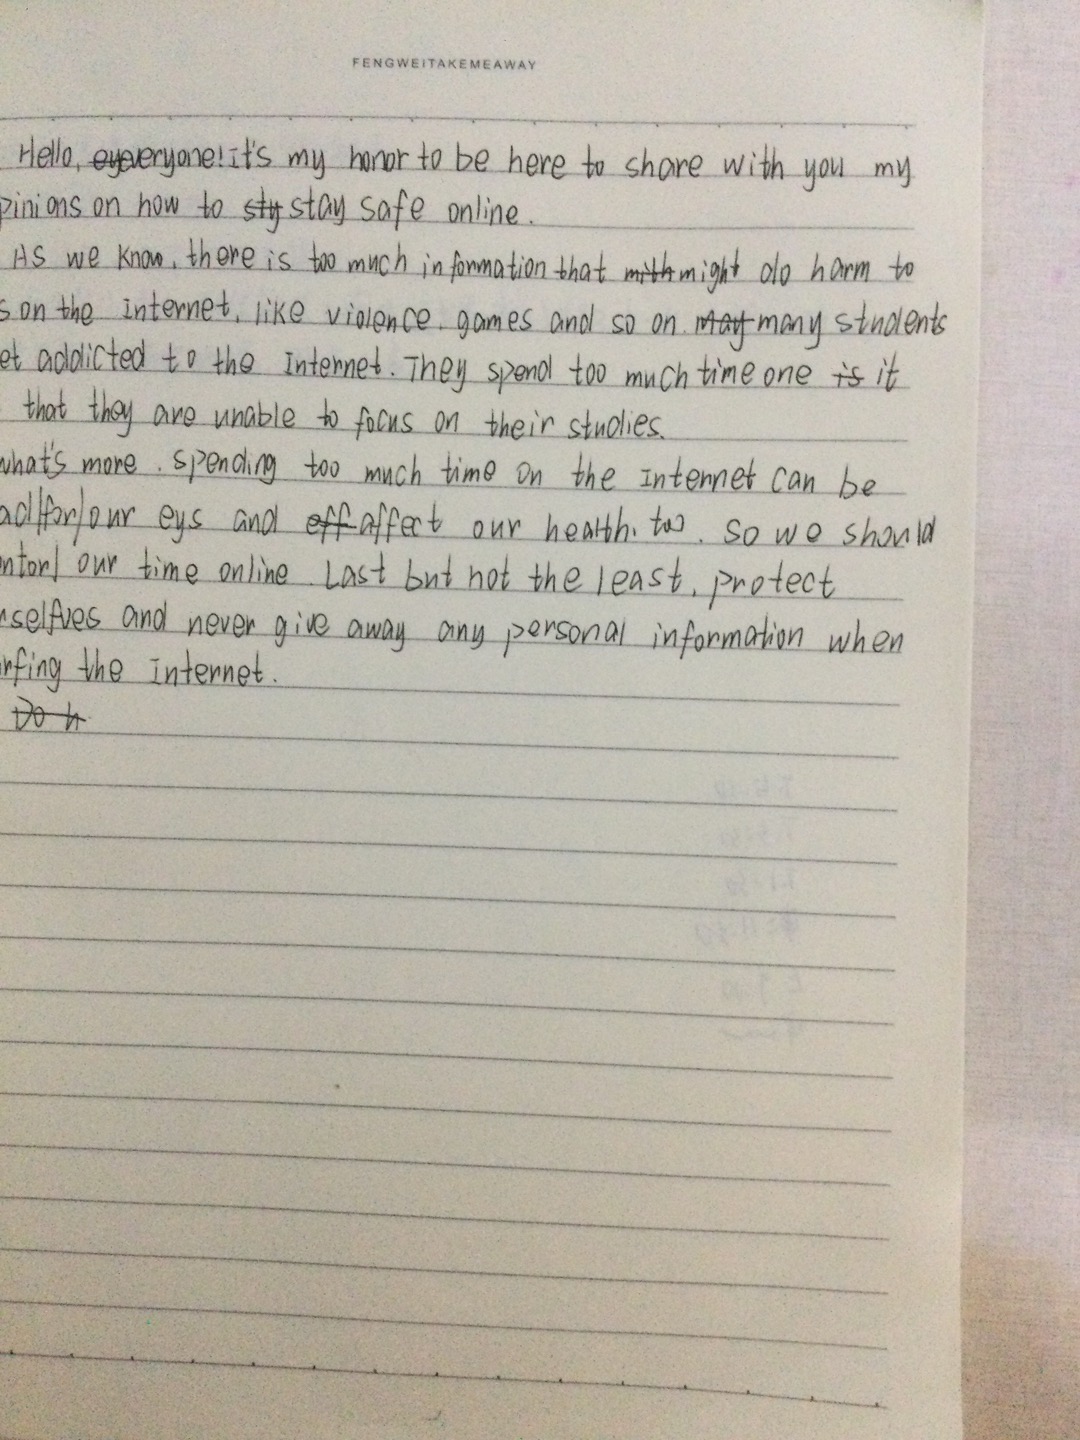 FENGWEITAKEMEAWAY
Hello, everyone! it's my honor to be here to share with you my
pinions on how to stay safe online.
As we know, there is too much information that might do harm to
s on the Internet, like violence, games and so on. many students
et addicted to the Internet. They spend too much time one it
that they are unable to focus on their studies.
what's more, spending too much time on the Internet can be
ad for our eys and affect our health, too. So we should
ntorl our time online. Last but not the least, protect
rselfves and never give away any personal information when
rfing the Internet.